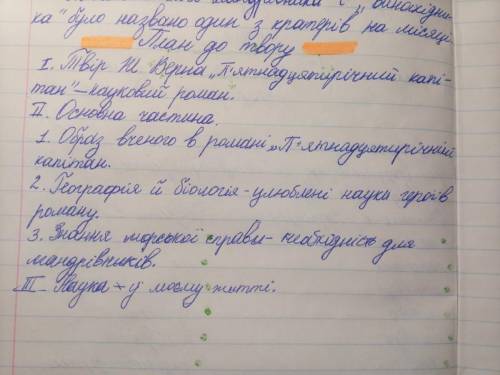 винахідни-
ка" було названо один з кратерів на місяці
План до твору
I. Твір Ж. Верна „П'ятнадцятирічний капі-
тан" – науковий роман.
II. Основна частина.
1. Образ вченого в романі „П'ятнадцятирічний
капітан.
2. Географія й біологія - улюблені науки героїв
роману.
3. Знання морської справи - необхідність для
мандрівників.
III – Наука – у моєму житті.